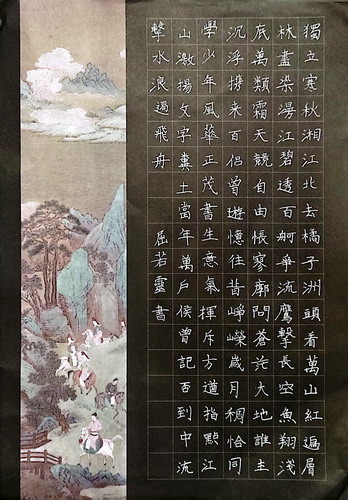 獨立寒秋湘江北去橘子洲頭看萬山紅遍層
林盡染漫江碧透百舸爭流鷹擊長空魚翔淺
底萬類霜天競自由悵寥廓問蒼茫大地誰主
沉浮携来百侶曾遊憶往昔崢嶸歲月稠恰同
學少年風華正茂書生意氣揮斥方遒指點江
山激揚文字糞土當年萬戶侯曾記否到中流
擊水浪遏飛舟
屈若靈書